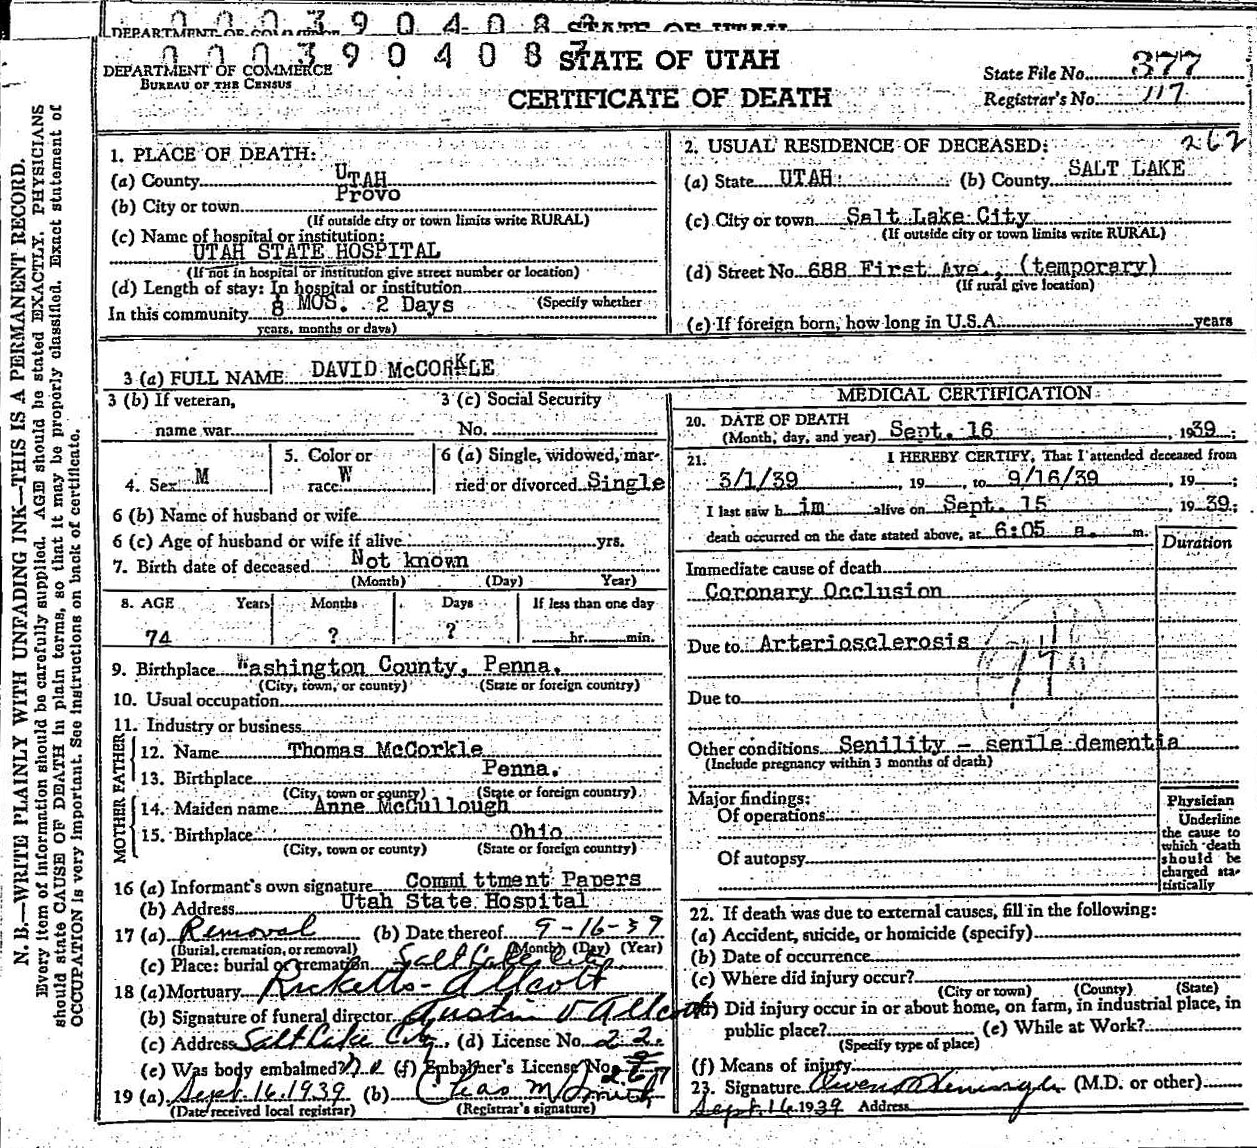 DEPARTMENT OF COMMERCE 000390408 STATE OF UTAH
000390408
DEPARTMENT OF COMMERCE
BUREAU OF THE CENSUS
STATE OF UTAH
CERTIFICATE OF DEATH
State File No. 377
Registrar's No. 117
262
N. B.—WRITE PLAINLY WITH UNFADING INK—THIS IS A PERMANENT RECORD.
Every item of information should be carefully supplied. AGE should be stated EXACTLY. PHYSICIANS
should state CAUSE OF DEATH in plain terms, so that it may be properly classified. Exact statement of
OCCUPATION is very important. See instructions on back of certificate.
1. PLACE OF DEATH:
(a) County UTAH
(b) City or town Provo
(If outside city or town limits write RURAL)
(c) Name of hospital or institution:
UTAH STATE HOSPITAL
(If not in hospital or institution give street number or location)
(d) Length of stay: In hospital or institution
In this community 8 MOS. 2 Days (Specify whether
years, months or days)
2. USUAL RESIDENCE OF DECEASED:
(a) State UTAH (b) County SALT LAKE
(c) City or town Salt Lake City
(If outside city or town limits write RURAL)
(d) Street No. 688 First Ave., (temporary)
(If rural give location)
(e) If foreign born, how long in U.S.A. years
3 (a) FULL NAME DAVID McCORKLE
3 (b) If veteran,
name war
3 (c) Social Security
No.
4. Sex M
5. Color or
race W
6 (a) Single, widowed, mar-
ried or divorced Single
6 (b) Name of husband or wife
6 (c) Age of husband or wife if alive yrs.
7. Birth date of deceased Not known
(Month) (Day) Year)
8. AGE Years Months Days If less than one day
74 ? ? hr. min.
9. Birthplace Washington County, Penna.
(City, town, or county) (State or foreign country)
10. Usual occupation
11. Industry or business
FATHER
12. Name Thomas McCorkle
13. Birthplace Penna.
(City, town or county) (State or foreign country)
MOTHER
14. Maiden name Anne McCullough
15. Birthplace Ohio
(City, town or county) (State or foreign country)
16 (a) Informant's own signature Committment Papers
(b) Address Utah State Hospital
17 (a) Removal (b) Date thereof 9-16-39
(Burial, cremation, or removal) (Month) (Day) (Year)
(c) Place: burial or cremation Salt Lake City
18 (a) Mortuary Ricketts-Allcott
(b) Signature of funeral director Austin V Allcott
(c) Address Salt Lake City, (d) License No. 22
(e) Was body embalmed? (f) Embalmer's License No. 267
19 (a) Sept. 16. 1939 (b) Chas M Smith
(Date received local registrar) (Registrar's signature)
MEDICAL CERTIFICATION
20. DATE OF DEATH
(Month, day, and year) Sept. 16, 1939;
21. I HEREBY CERTIFY, That I attended deceased from
3/1/39, 19 , to 9/16/39, 19 ;
I last saw h im alive on Sept. 15, 1939;
death occurred on the date stated above, at 6:05 a. m.
Duration
Immediate cause of death
Coronary Occlusion
Due to Arteriosclerosis
Due to
Other conditions Senility - senile dementia
(Include pregnancy within 3 months of death)
Major findings:
Of operations
Of autopsy
Physician
Underline
the cause to
which death
should be
charged sta-
tistically
22. If death was due to external causes, fill in the following:
(a) Accident, suicide, or homicide (specify)
(b) Date of occurrence
(c) Where did injury occur?
(City or town) (County) (State)
(d) Did injury occur in or about home, on farm, in industrial place, in
public place? (e) While at Work?
(Specify type of place)
(f) Means of injury
23. Signature (M.D. or other)
Sept. 16 1939 Address